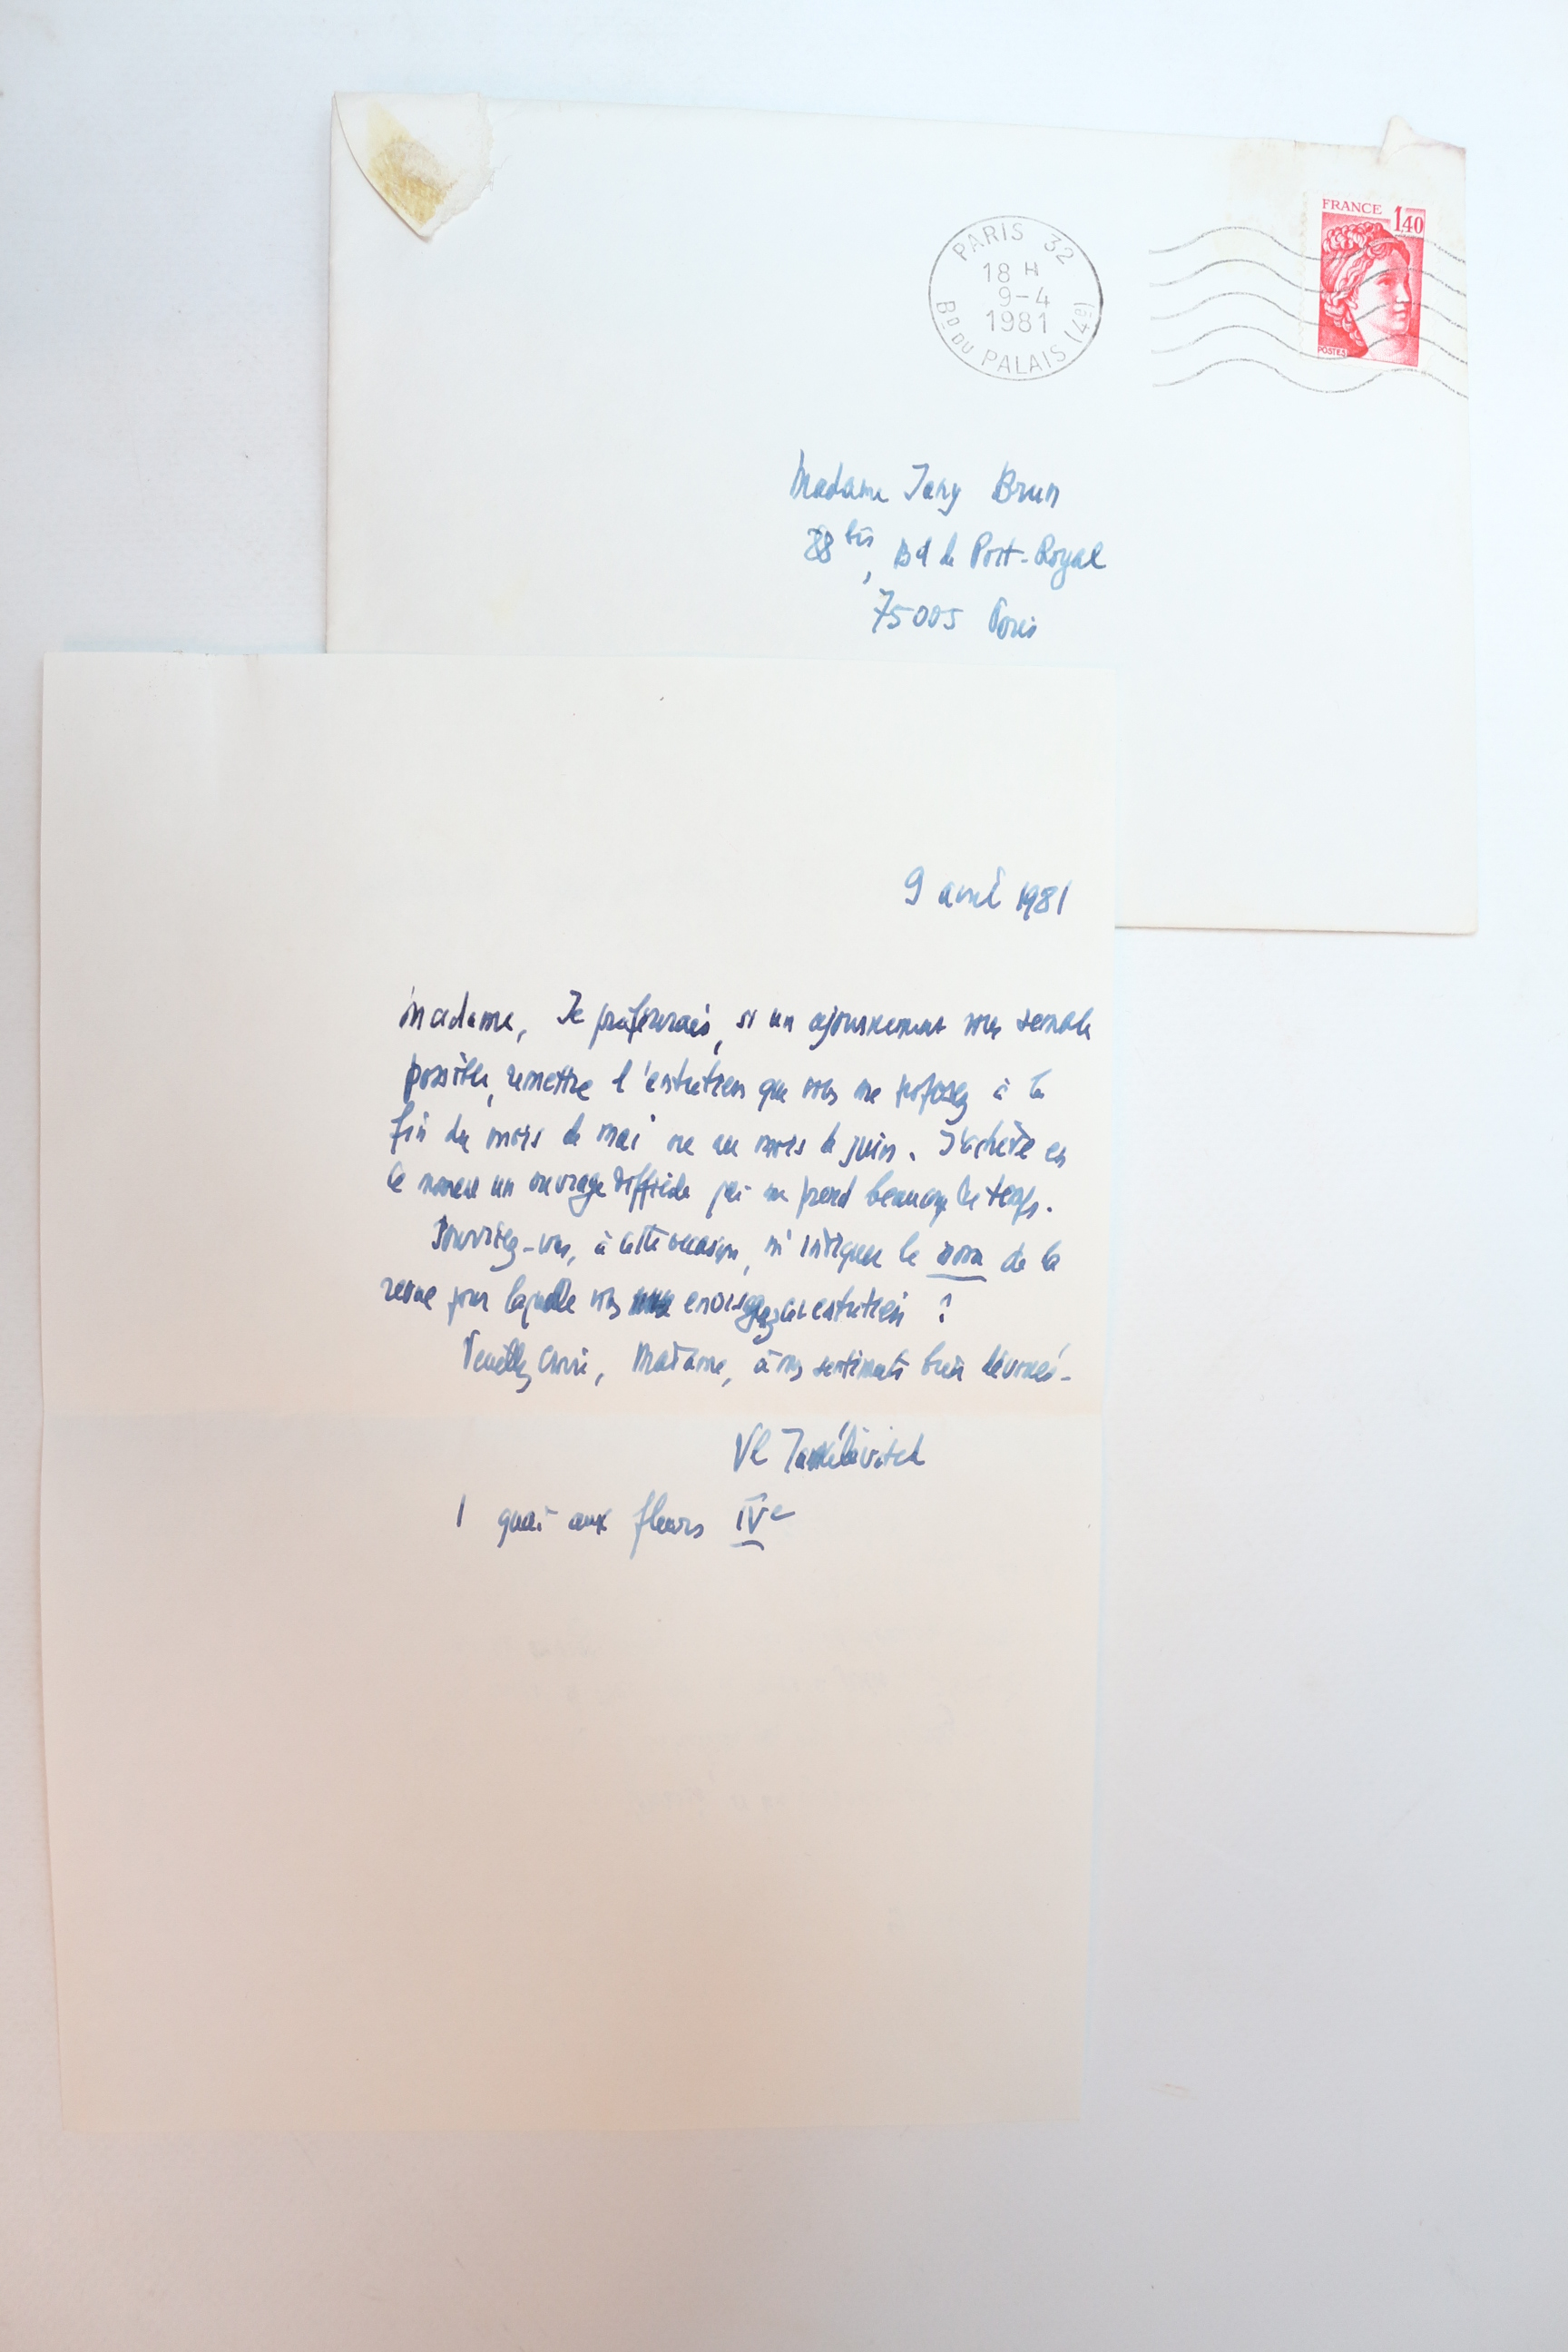 PARIS 32
18 H
9-4
1981
Bd DU PALAIS (4e)
FRANCE 1,40
POSTES
Madame Jany Brun
88 bis, Bd de Port-Royal
75005 Paris
9 avril 1981
Madame, Je préférerais, si un ajournement vous semble
possible, remettre l'entretien que vous me proposez à la
fin du mois de mai ou au mois de juin. J'achève en
ce moment un ouvrage difficile qui me prend beaucoup de temps.
Pourriez-vous, à cette occasion, m'indiquer le nom de la
revue pour laquelle vous envisagez cet entretien ?
Veuillez croire, Madame, à mes sentiments bien dévoués.
Vl Jankélévitch
1 quai aux fleurs IVe